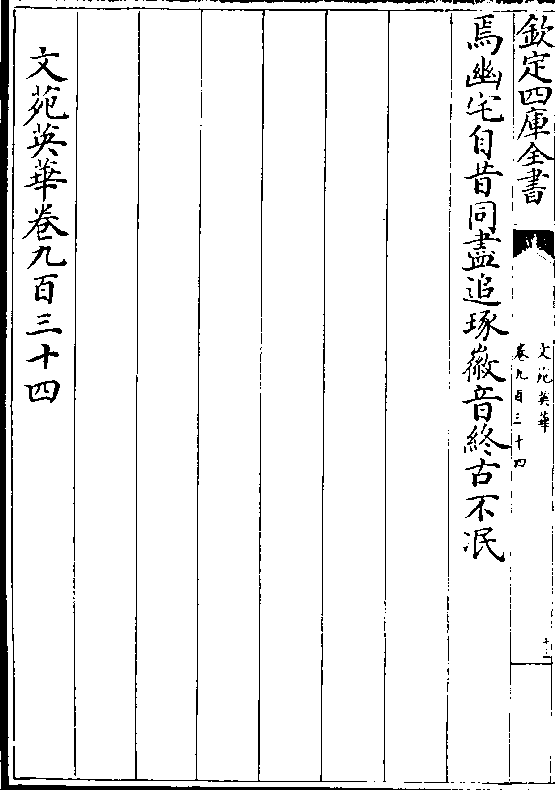 欽定四庫全書
文苑英華
卷九百三十四
十二
焉幽宅自昔同盡追琢徽音終古不泯
文苑英華卷九百三十四